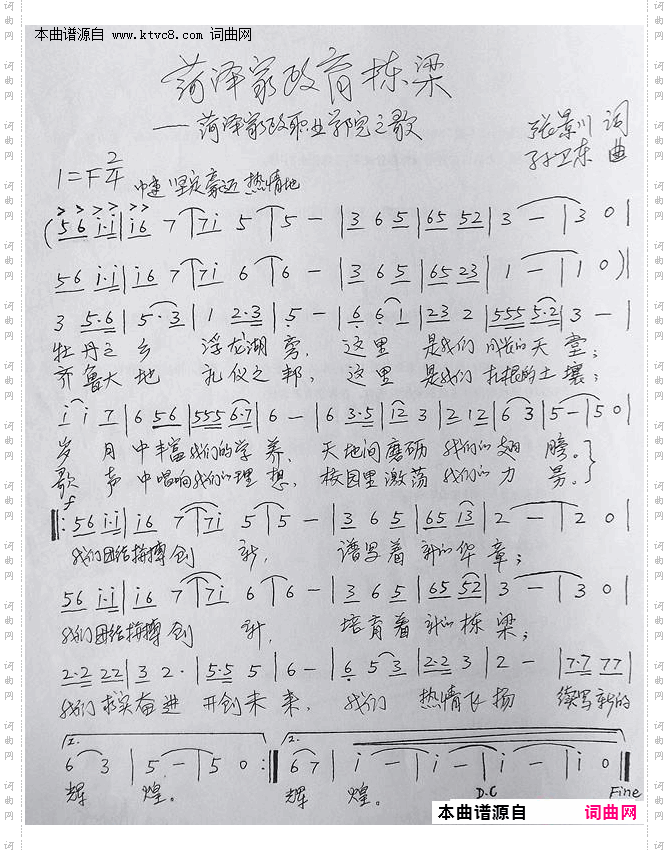 本曲谱源自 www.ktvc8.com 词曲网
菏泽家政育栋梁
——菏泽家政职业学院之歌
张景川 词
孙卫东 曲
1=F 2/4 中速 坚定豪迈 热情地
(5 6 i·i | i6 7 | 7i 5 | 5 - | 3 6 5 | 65 52 | 3 - | 3 0 |
56 i·i | i6 7 | 7i 6 | 6 - | 3 6 5 | 65 23 | 1 - | 1 0 )|
3 5·6 | 5·3 | 1 2·3 | 5 - | 6 6 1 | 23 2 | 555 5·2 | 3 - |
牡丹之乡 浮龙湖旁, 这里 是我们 成长的天堂;
齐鲁大地 礼仪之邦, 这里 是我们 扎根的土壤;
i i 7 | 6 56 | 555 6·7 | 6 - | 6 3·5 | i2 3 | 2 12 | 6 3 | 5 - | 5 0
岁月中丰富我们的学养, 天地间磨砺我们的翅膀。
歌声中唱响我们的理想, 校园里激荡我们的力量。
f
‖: 56 i·i | i6 7 | 7i 5 | 5 - | 3 6 5 | 65 i3 | 2 - | 2 0 |
我们团结拼搏创新, 谱写着新的华章;
56 i·i | i6 7 | 7i 6 | 6 - | 3 6 5 | 65 52 | 3 - | 3 0 |
我们团结拼搏创新, 培育着新的栋梁;
2·2 22 | 3 2· | 5·5 5 | 6 - | 6 5 3 | 2·2 3 | 2 - | 7·7 77 |
我们求实奋进 开创未来, 我们 热情飞扬 续写新的
1.
6 3 | 5 - | 5 0 :‖
2.
6 7 | i - | i - | i - | i 0 ‖
辉煌。 辉煌。 D.C Fine
本曲谱源自 词曲网
词曲网